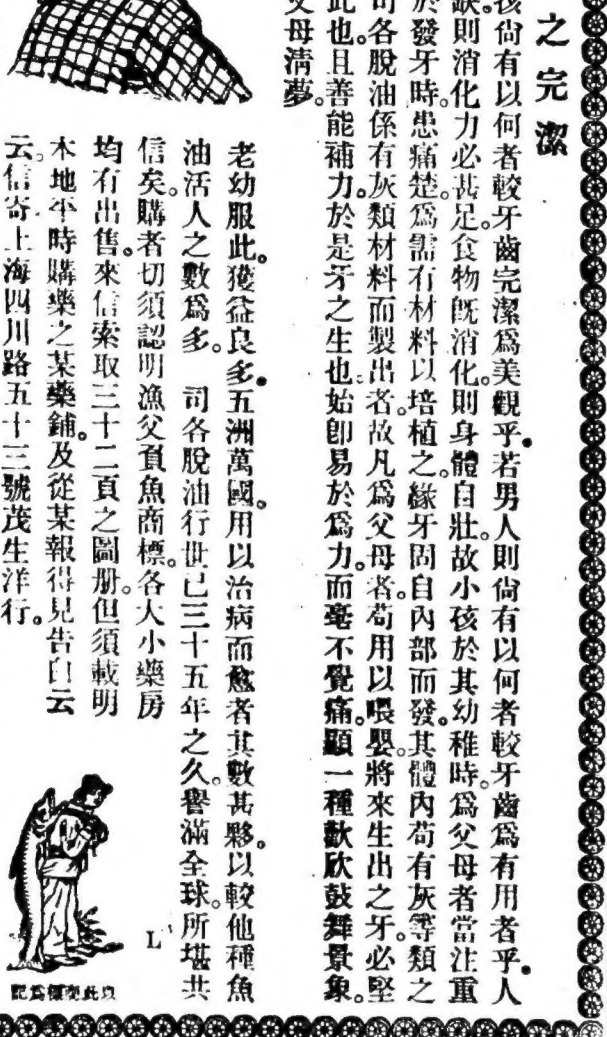 之完潔
孩尙有以何者較牙齒完潔爲美觀乎。若男人則尙有以何者較牙齒爲有用者乎。人
缺。則消化力必甚足。食物旣消化。則身體自壯。故小孩於其幼稚時。爲父母者當注重
於發牙時。患痛楚。爲需有材料以培植之。緣牙固自內部而發。其體內苟有灰等類之
司各脫油係有灰類材料而製出者。故凡爲父母者。苟用以喂嬰。將來生出之牙。必堅
此也。且善能補力。於是牙之生也。始卽易於爲力。而毫不覺痛。顯一種歡欣鼓舞景象。
父母淸夢。
老幼服此。獲益良多。五洲萬國。用以治病而愈者。其數甚夥。以較他種魚
油活人之數爲多。 司各脫油行世已三十五年之久。譽滿全球。所堪共
信矣。購者切須認明漁父負魚商標。各大小藥房
均有出售。來信索取三十二頁之圖册。但須載明
本地平時購藥之某藥鋪。及從某報得見告白云
云。信寄上海四川路五十三號茂生洋行。
L
以此商標爲記